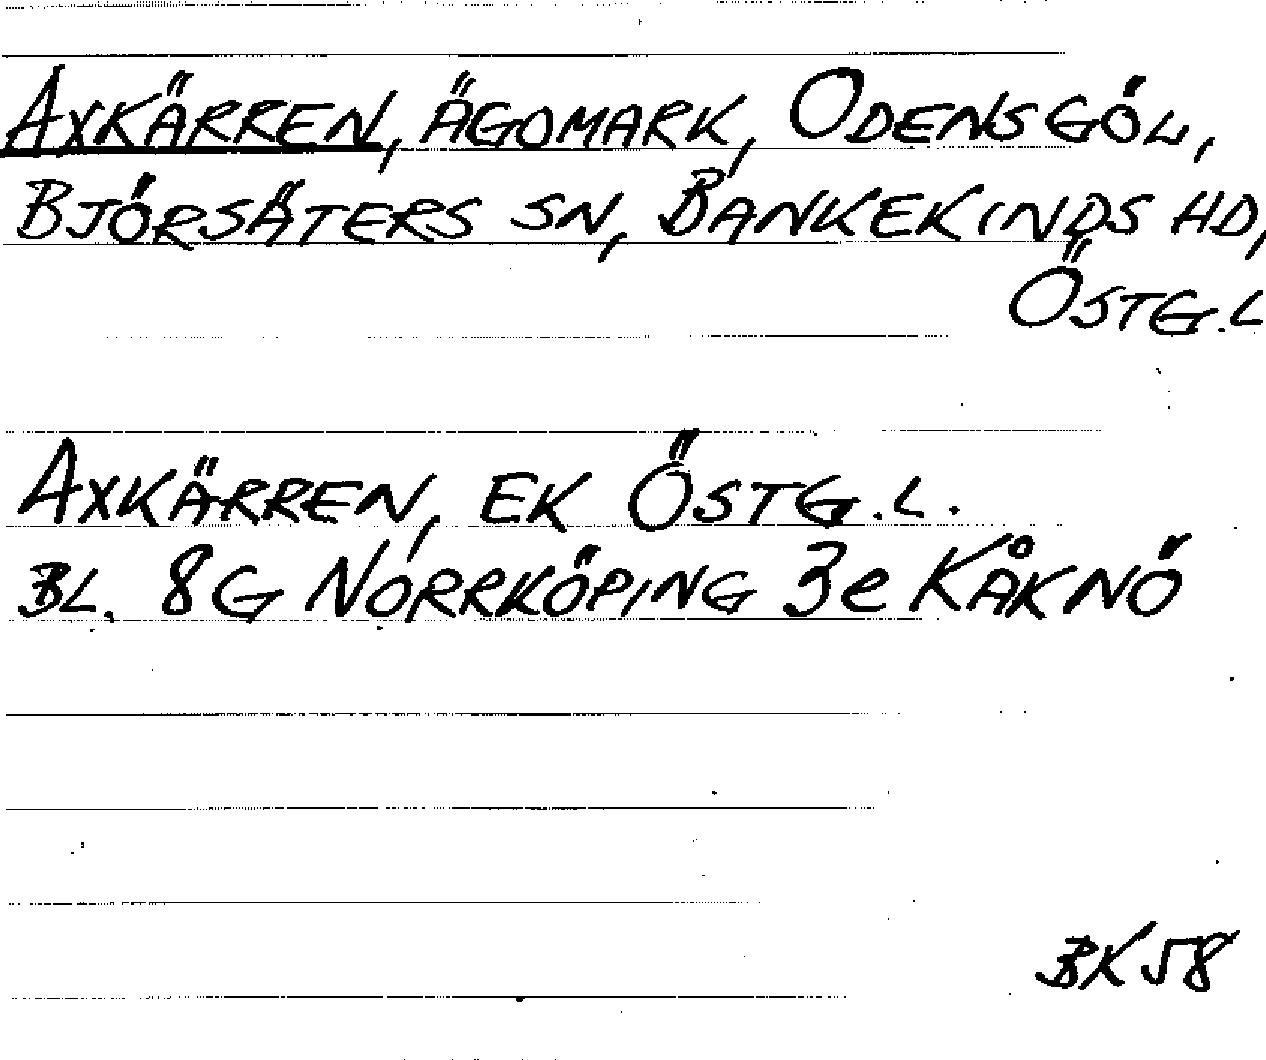 AXKÄRREN, ÄGOMARK, ODENSGÖL,
BJÖRSÄTERS SN, BANKEKINDS HD,
ÖSTG.L
AXKÄRREN, EK ÖSTG.L.
BL. 8G NORRKÖPING 3e KÅKNÖ
BK58